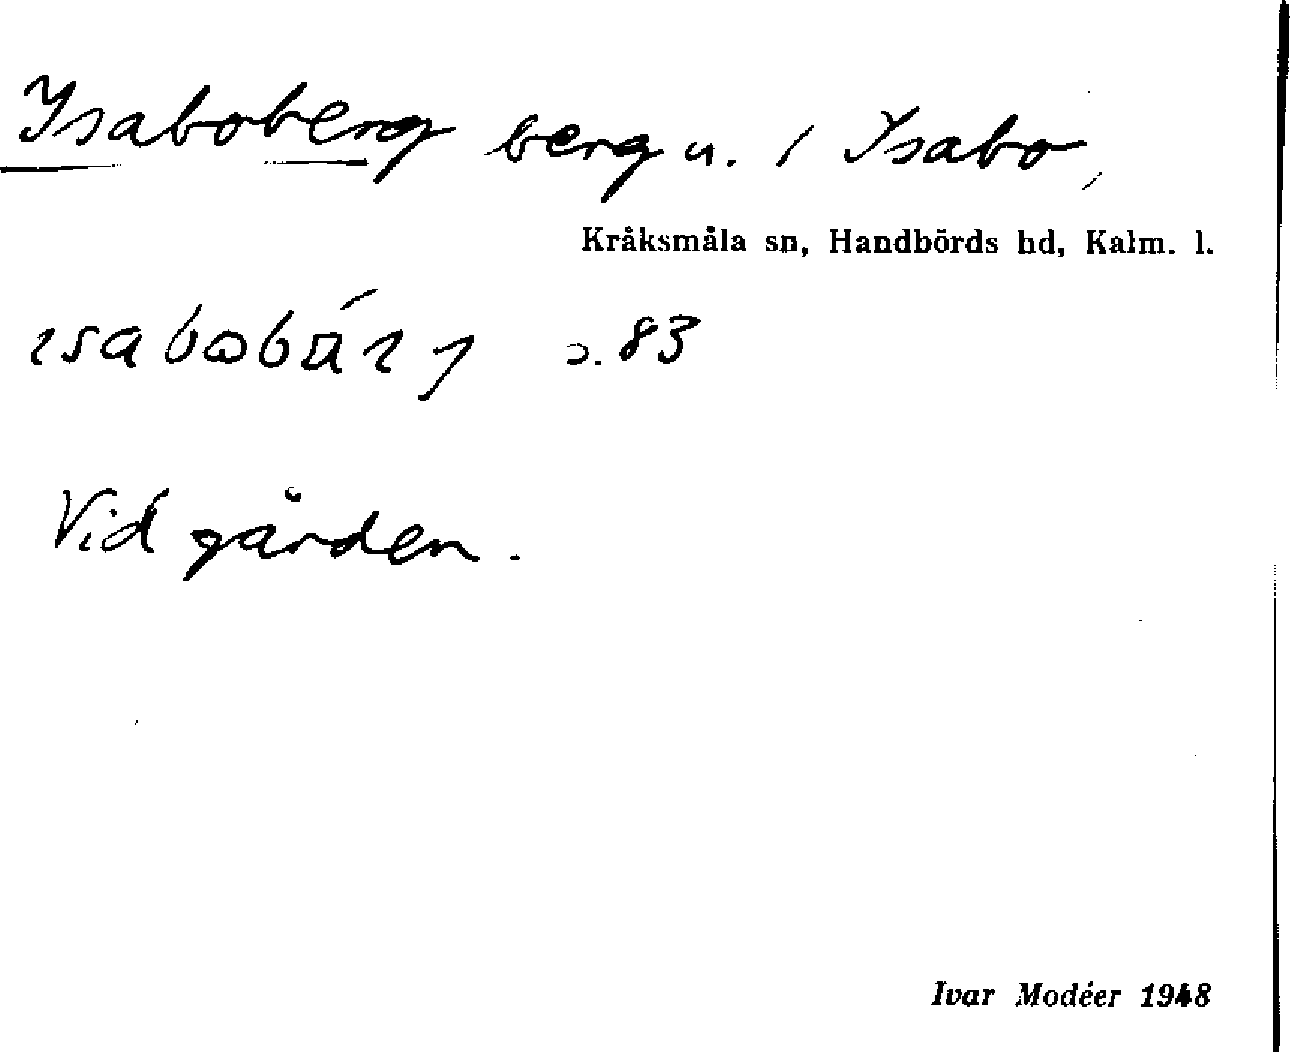 Isaboberg berg n. / Isabo,
Kråksmåla sn, Handbörds hd, Kalm. l.
s. 83
Vid gården.
Ivar Modéer 1948